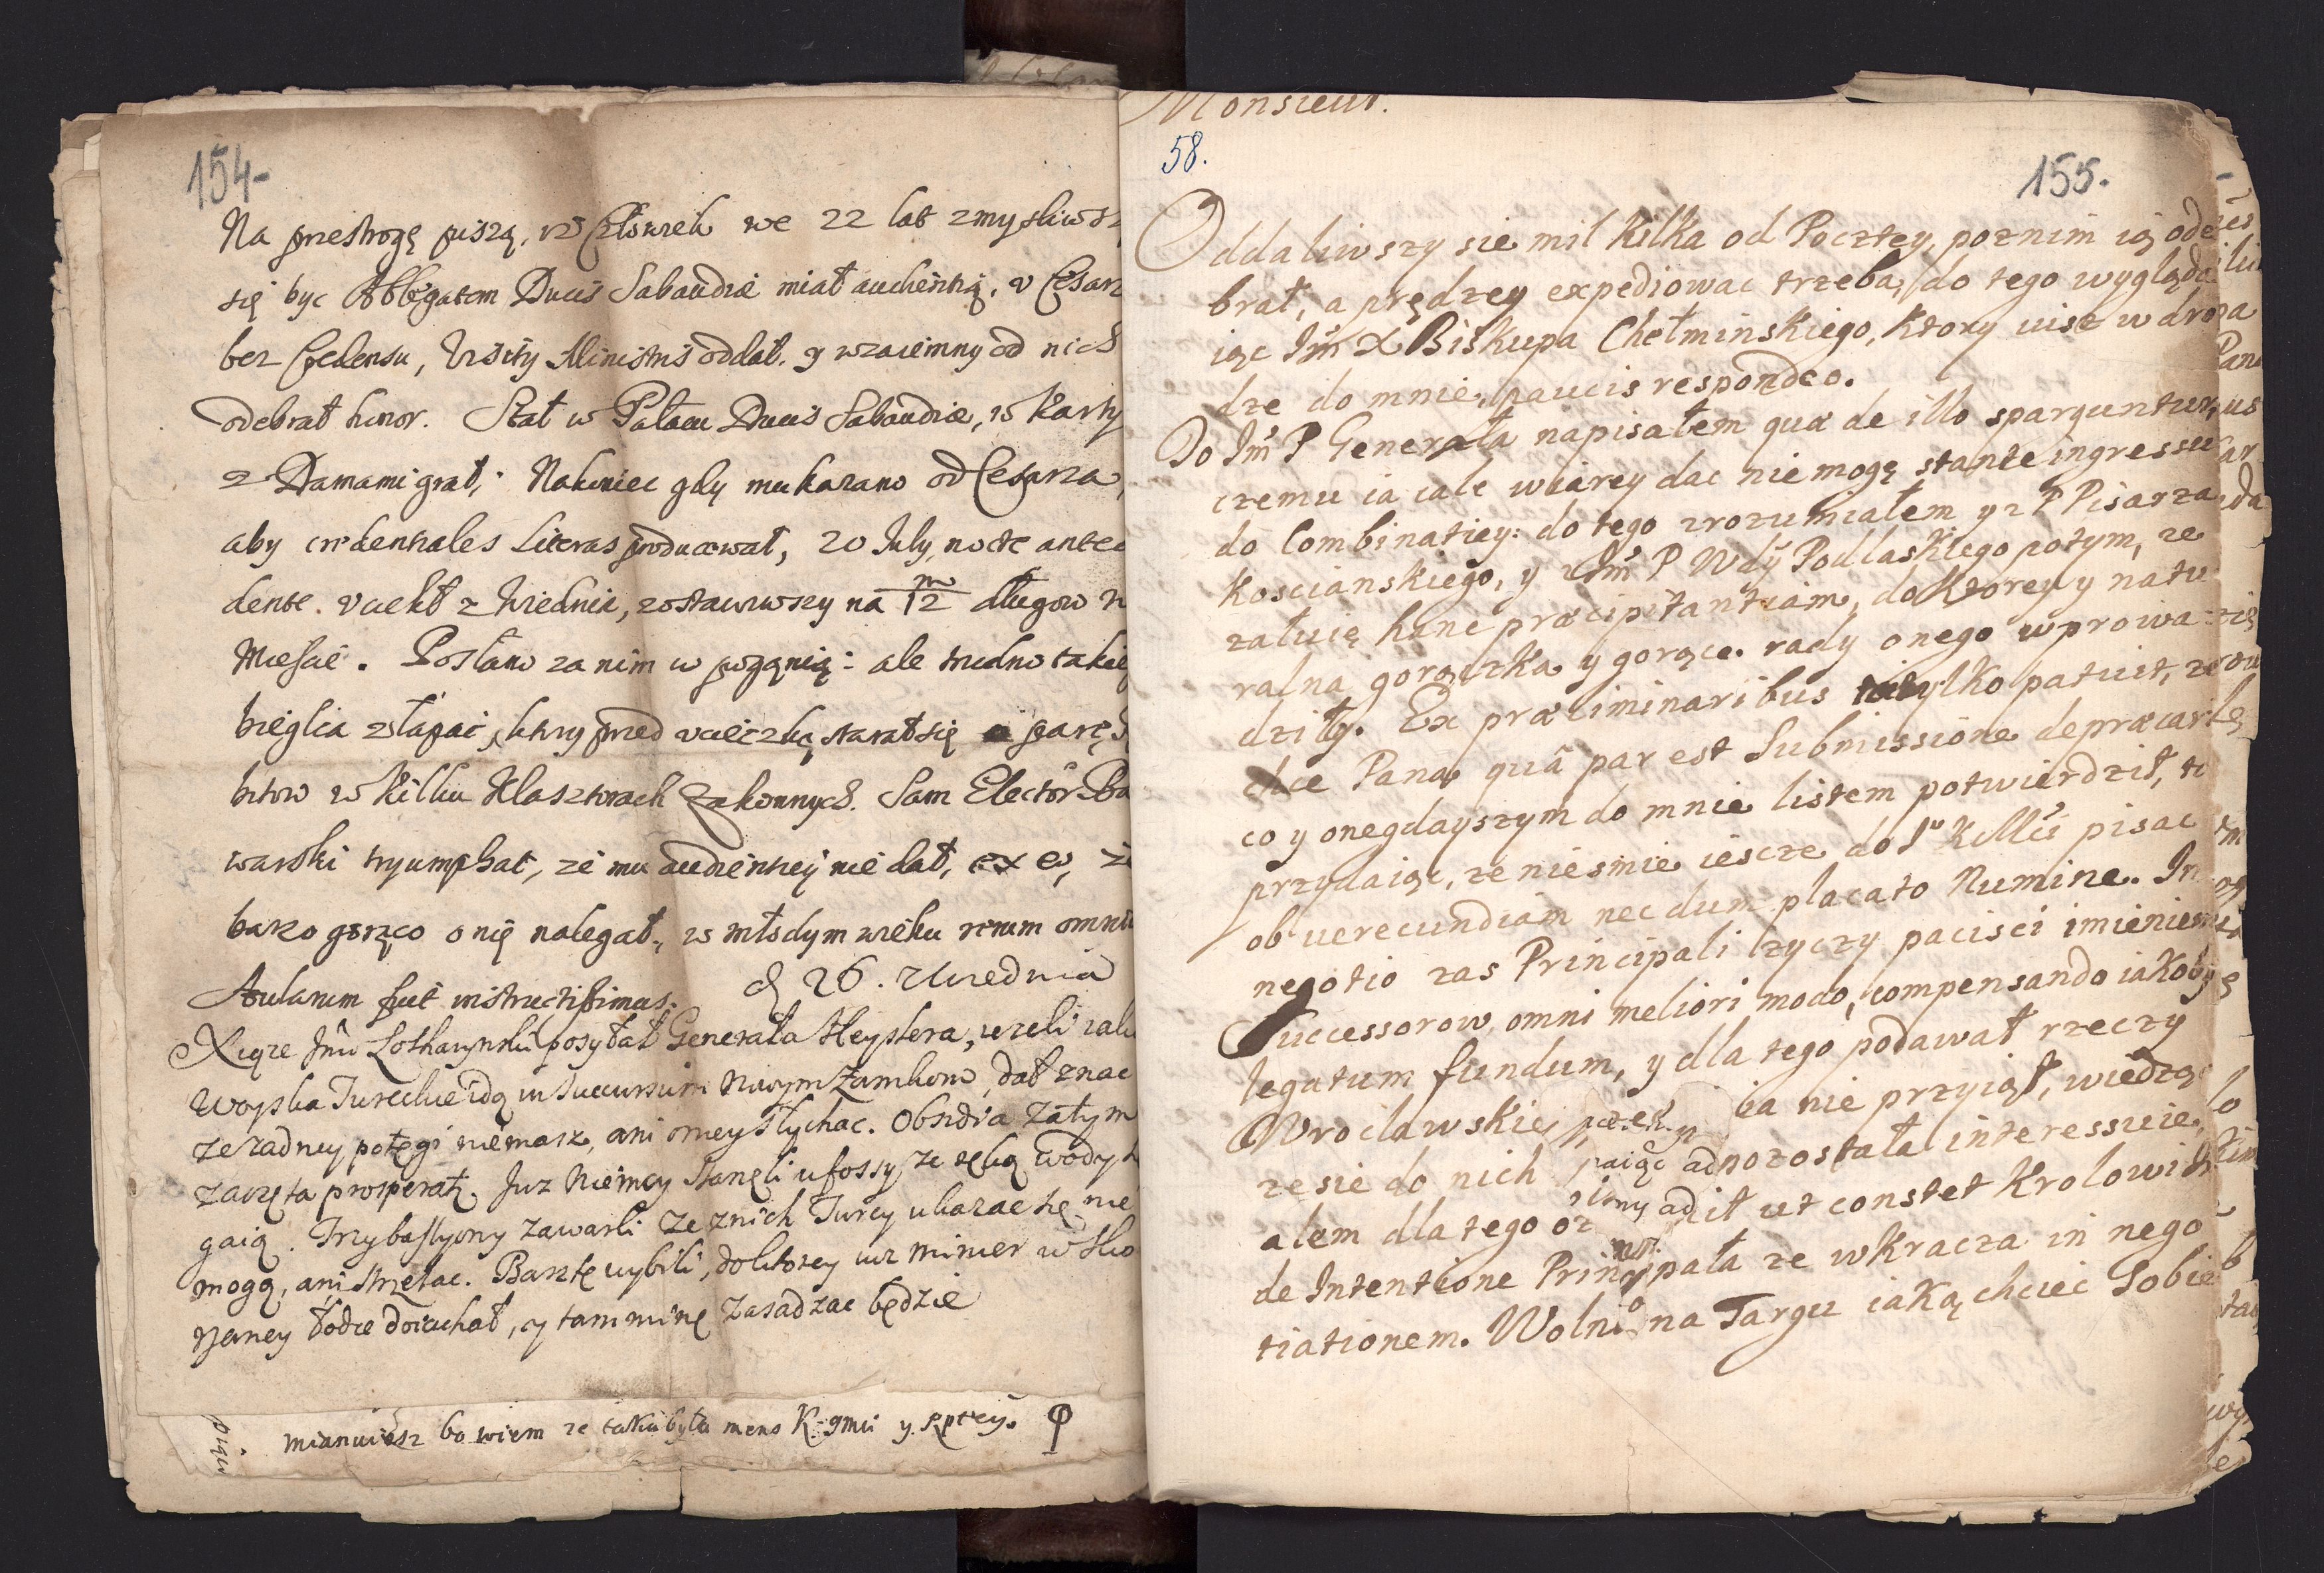 154-
Na przestrogę piszą, iz Człowiek we 22 lat zmysliwsz
się byc Ablegatem Ducis Sabaudiæ miał audientią, v Cesarz
bez Credensu, Vizity Ministris oddał. y wzaiemny od nich
odebrał honor. Stał w Pałacu Ducis Sabaudiæ, w karty
z Damami grał, Nakoniec gdy mu kazano od Cesarza,
aby credentiales Literas producował, 20 July, nocte antec
dente. vciekł z Wiednia, zostawiwszy na 12 m długow w
Miescie. Posłano za nim w pogonią: ale trudno takie
bieglca złapać, ktory przed vcieczką starał się o parę
bitow w kilku Klasztorach Zakonnych. Sam Elector Ba
warski tryumphat, ze mu audientiey nie dał, ex eo, z
barzo gorąco o nię nalegał, w młodym wieku rerum omni
Aularum fuit instructissimus. d 26. z Wiednia
Xiąze Jmc Lotharynski posyłał Generała Heystera, iezeli
Woyska Tureckie idą in Succursum Nowym Zamkom, dał znac
ze zadney potęgi niemasz, ani oniey słychac. Obsidia zatym
zaczęta prosperatę. Juz Niemcy Stanęli u fossy, ze ręką wody
gaią. Trzy bastyony zawarli ze z nich Turcy ukazac się nie
mogą, ani strzelac. Basztę wybili, do ktorey iuz minier w sko
rzaney łodce doiachał, y tam minę zasadzac będzie
mianuiesz bo wiem ze taka była mens K. Jmci y. Rptcey.
Monsieur.
58.
155.
Oddaliwszy sie mil kilka od Poczty, poznim ią ode
brał, a prędzey expediowac trzeba, do tego wygląda
iąc Jm X Biskupa Chełminskiego, ktory iusz w dro
dze do mnie, paucis respondeo.
Do Jm P Generała napisałem quæ de illo sparguntur,
czemu ia cale wiarey dac nie mogę stante ingressu
do Combinatiey: do tego zrozumiałem y z P Pisarza
Koscianskiego, y z Jm P Wdy Podlaskiego potym, ze
załuię hanc præcipitantiam, do ktorey y natu
ralna gorączka y gorące. rady onego wprowa
dziły. Ex præliminaribus tylko patuit, ze
chce Pana quâ par est Submissione deprecari
co y onegdayszym do mnie listem potwierdził,
przydaiąc, ze niesmie ieszcze do J K Mci pisac
ob uerecundiam nec dum placato Numine. In
negotio zas Principali zyczy pacisci imieniem
Successorow, omni meliori modo, compensando iakoby
legatum fundum, y dla tego podawał rzeczy
Wrocławskie, ia nie przyiął, wiedząc
ze sie do nich adnozostała interessuie,
alem dla tego oz adit ut constet Krolowi
de Intentione Principała ze wkracza in nego
tiationem. Wolno na Targu iaką chciec Sobie